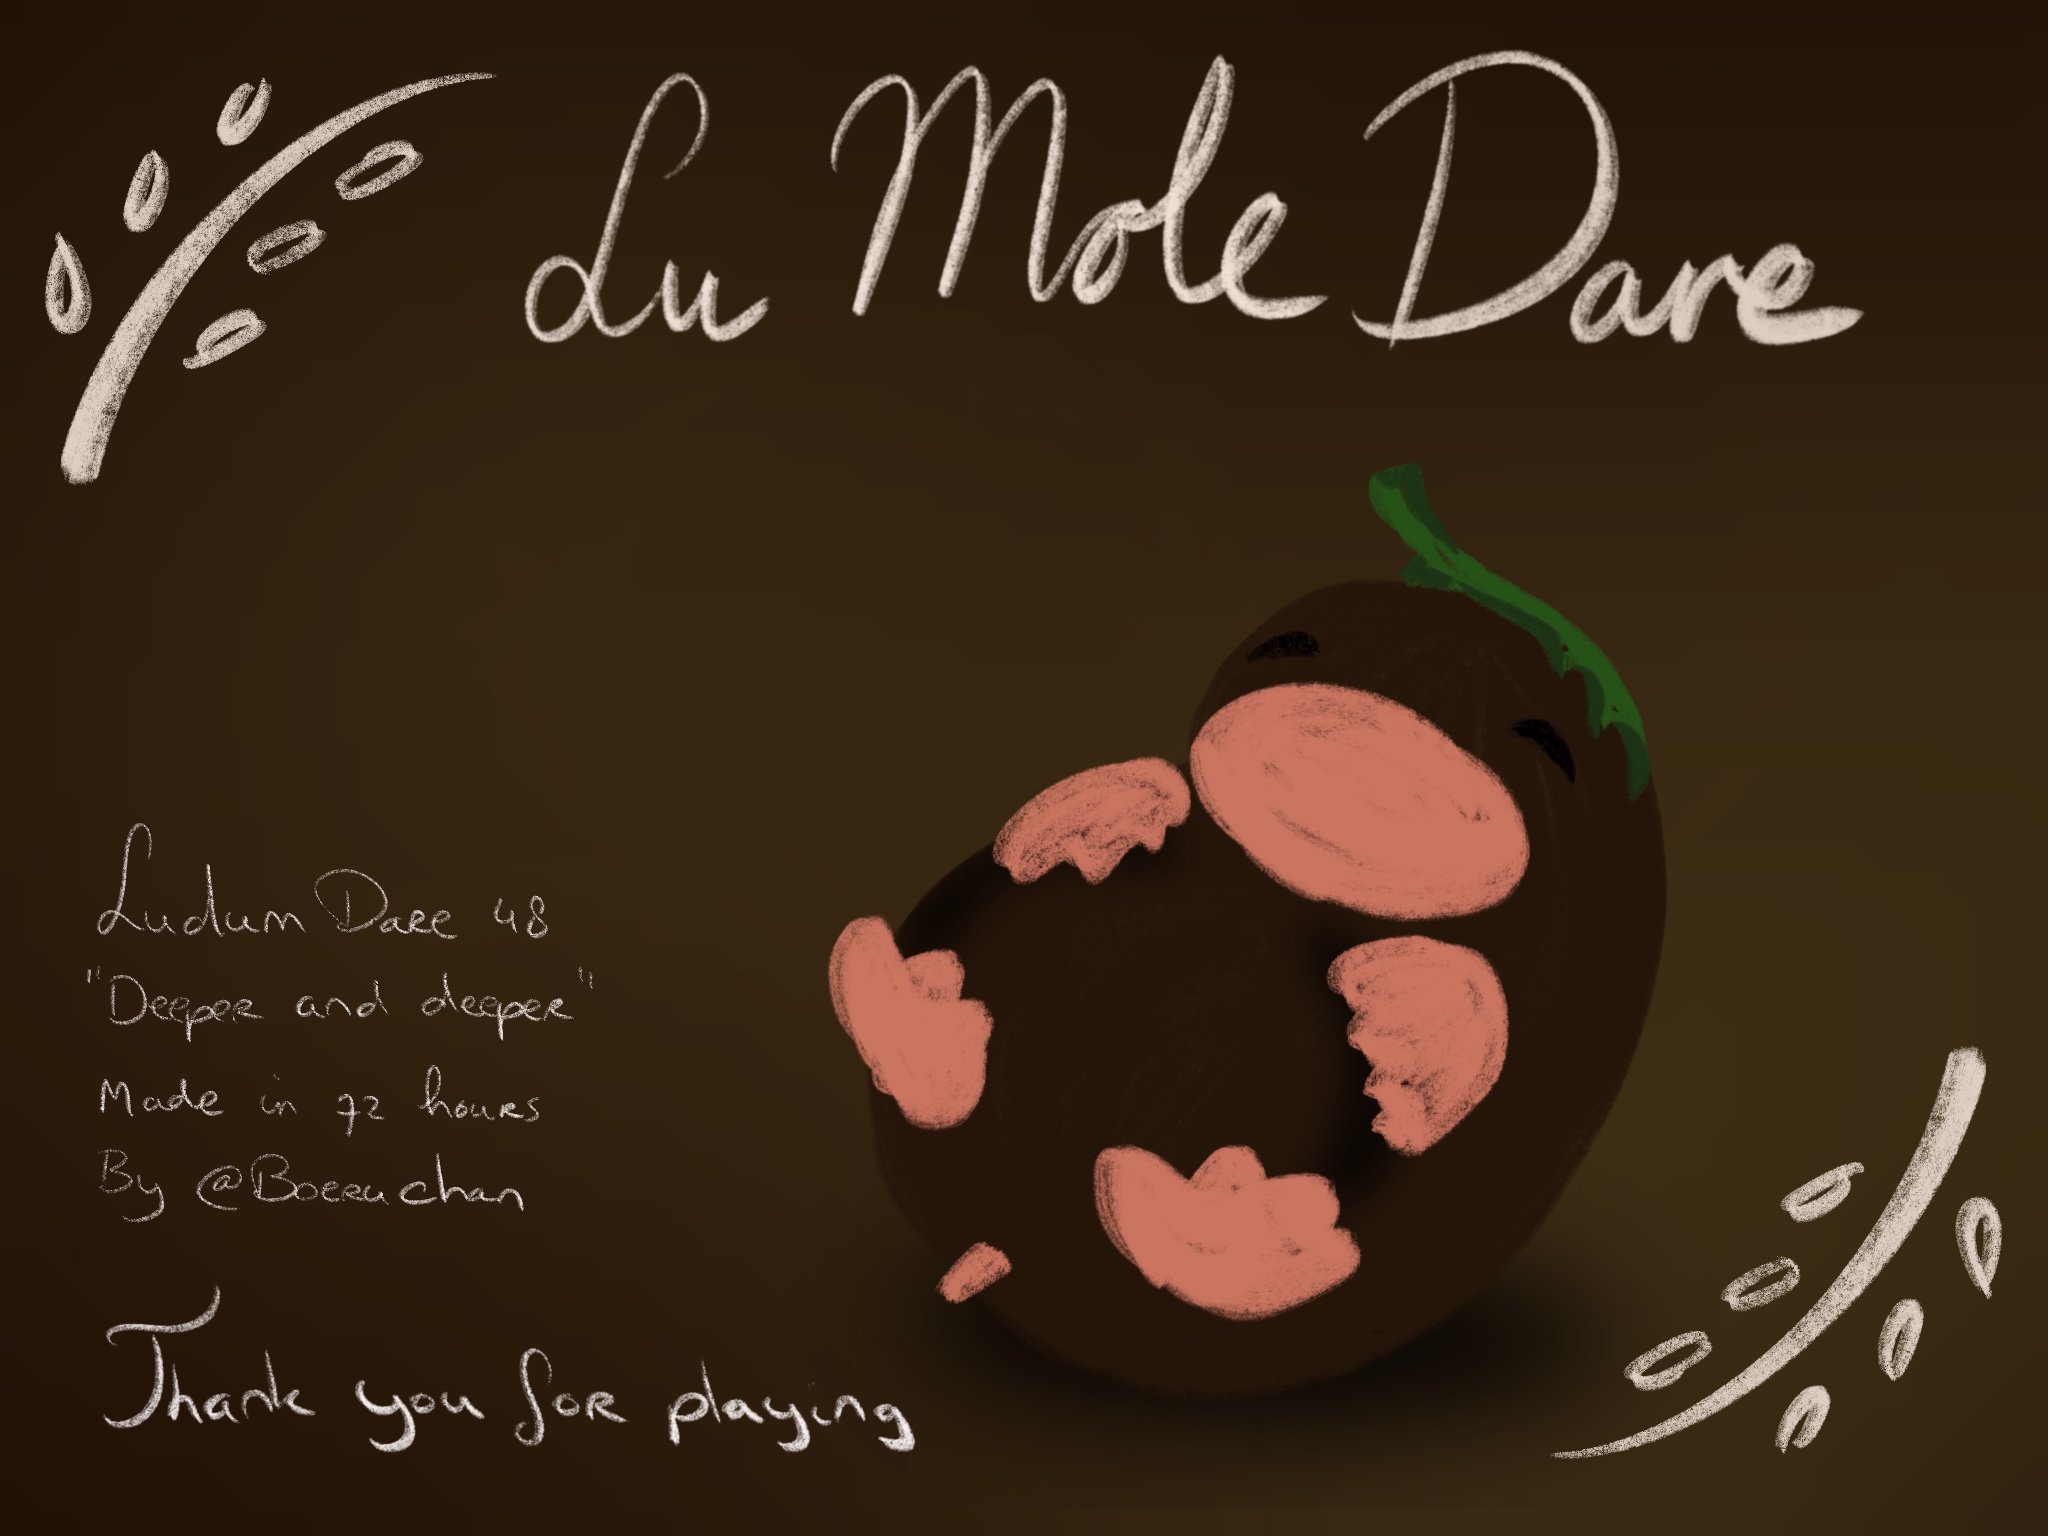 Lu Mole Dare
Ludum Dare 48
"Deeper and deeper"
Made in 72 hours
By @Boeruchan
Thank you for playing